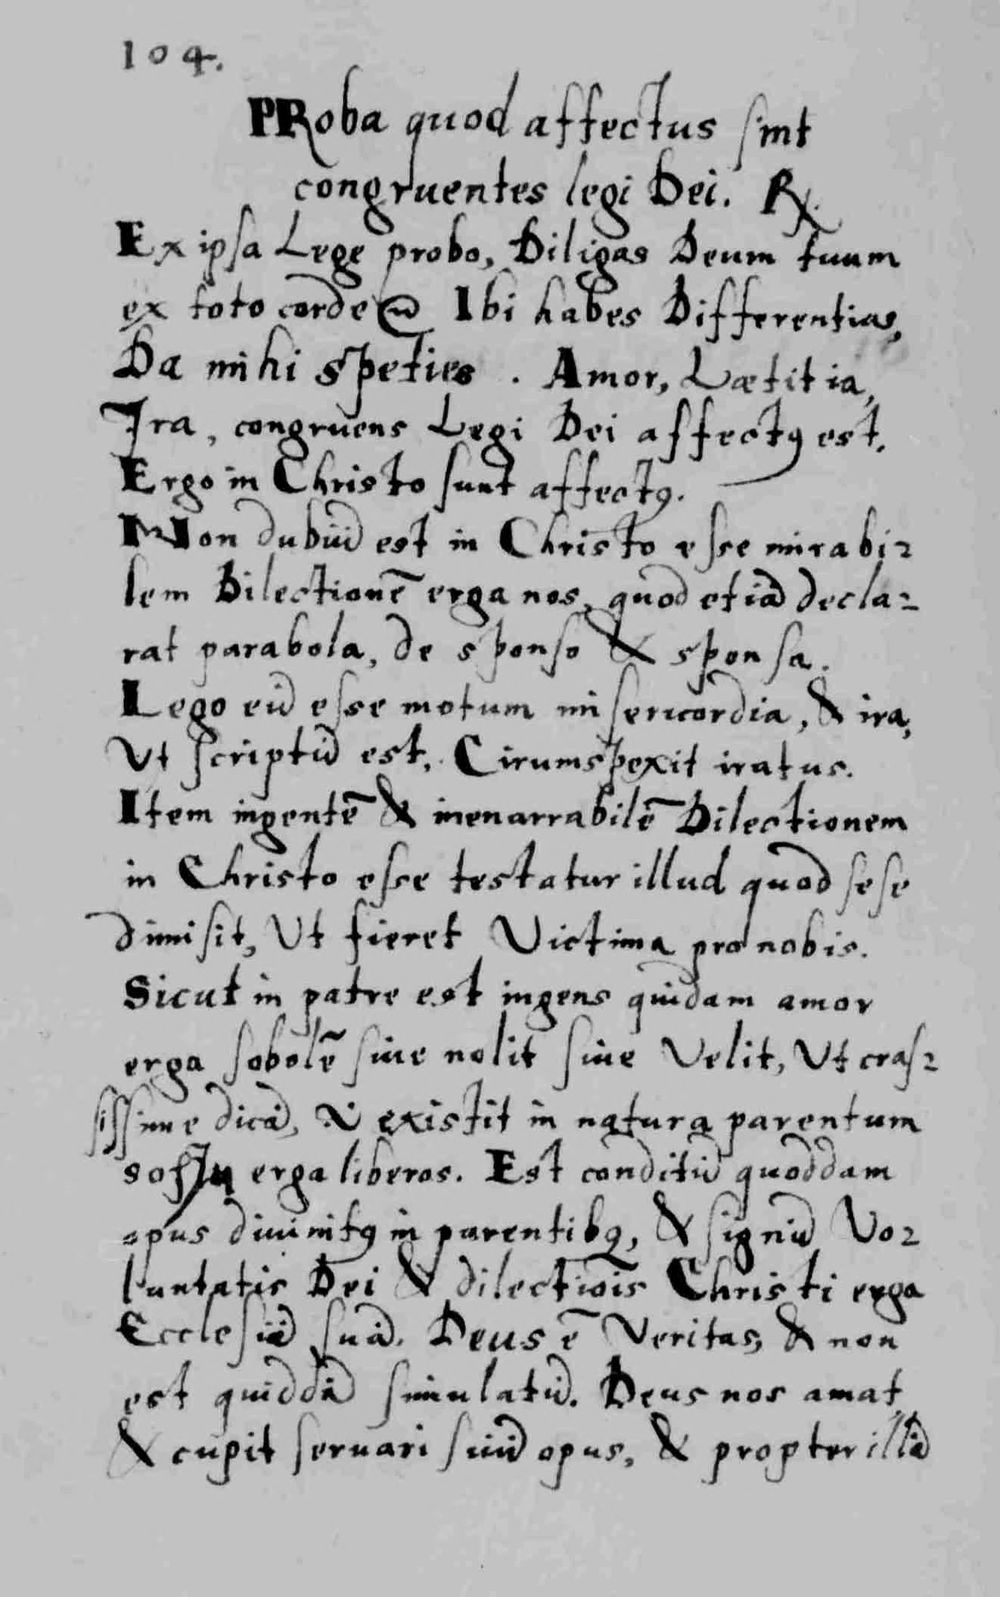 104.
PRoba quod affectus sint
congruentes legi Dei. ℞.
Ex ipsa Lege probo, Diligas Deum tuum
ex toto corde Ibi habes Differentias,
Da mihi speties. Amor, Lætitia,
Ira, congruens Legi Dei affectꝰ est.
Ergo in Christo sunt affectꝰ.
Non dubiũ est in Christo esse mirabi=
lem Dilectionẽ erga nos, quod etiã decla=
rat parabola, de sponso & sponsa.
Lego eũ esse motum misericordia, & ira,
Ut scriptũ est, Cirumspexit iratus.
Item ingentẽ & inenarrabilẽ Dilectionem
in Christo esse testatur illud quod sese
dimisit, Ut fieret Victima pro nobis.
Sicut in patre est ingens quidam amor
erga sobolẽ siue nolit siue Velit, Ut cras=
sissime dicã, existit in natura parentum
erga liberos. Est conditũ quoddam
opus diuinitꝰ in parentibꝰ, & signũ Vo=
luntatis Dei & dilectiõis Christi erga
Ecclesiã suã. Deus ẽ Veritas, & non
est quiddã simulatũ. Deus nos amat,
& cupit seruari suũ opus, & propter illã